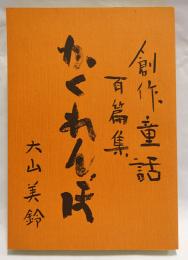 創作童話
百篇集
かくれんぼ
大山美鈴